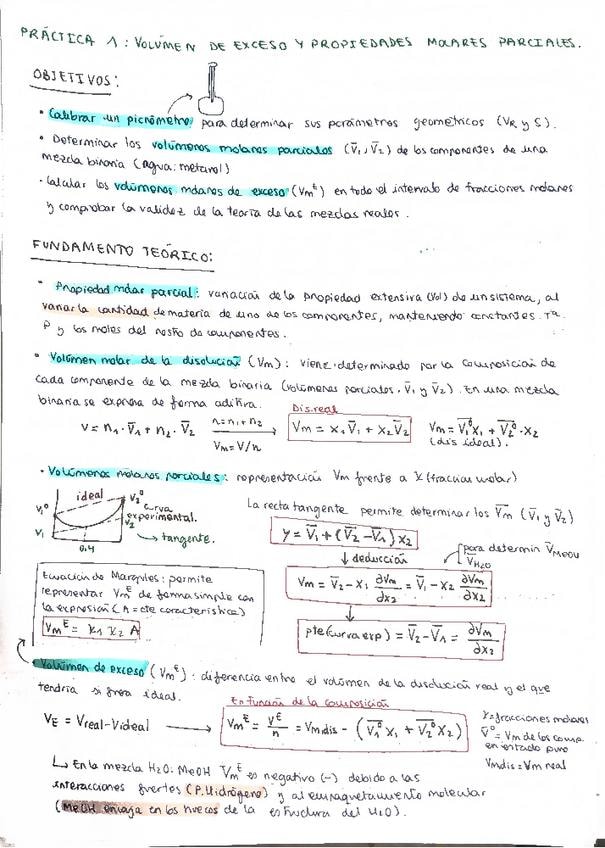 PRÁCTICA 1: VOLÚMEN DE EXCESO Y PROPIEDADES MOLARES PARCIALES.
OBJETIVOS:
• Calibrar un picnómetro para determinar sus parámetros geométricos (VR y S).
• Determinar los volúmenes molares parciales (V̅1, V̅2) de los componentes de una
mezcla binaria (agua:metanol)
• Calcular los volúmenes molares de exceso (VmE) en todo el intervalo de fracciones molares
y comprobar la validez de la teoría de las mezclas reales.
FUNDAMENTO TEÓRICO:
• Propiedad molar parcial: variación de la propiedad extensiva (Vol) de un sistema, al
variar la cantidad de materia de uno de los componentes, manteniendo constantes Tª
P y los moles del resto de componentes.
• Volúmen molar de la disolución (Vm): viene determinado por la composición de
cada componente de la mezcla binaria (volúmenes parciales V̅1 y V̅2). En una mezcla
binaria se expresa de forma aditiva.
Dis.real
V = n1·V̅1 + n2·V̅2
n=n1+n2
Vm=V/n
Vm = x1V̅1 + x2V̅2
Vm = V̅1⁰x1 + V̅2⁰·x2
(dis ideal).
• Volúmenes molares parciales: representación Vm frente a X (fracción molar)
ideal
V2⁰
V1⁰
curva
experimental.
V2
V1
tangente.
0.4
La recta tangente permite determinar los V̅m (V̅1 y V̅2)
y = V̅1 + (V̅2 - V̅1) x2
para determin V̅MeOH
V̅H2O
deducción
Vm = V̅2 - x1 ∂Vm/∂x2 = V̅1 - x2 ∂Vm/∂x2
pte(curva exp) = V̅2 - V̅1 = ∂Vm/∂x2
Ecuación de Margules: permite
representar VmE de forma simple con
la expresión (A = cte característica)
VmE = x1 x2 A
• Volúmen de exceso (VmE): diferencia entre el volúmen de la disolución real y el que
tendría si fuera ideal.
En función de la composición
VE = Vreal - Videal
VmE = VE/n = Vmdis - (V̅1⁰x1 + V̅2⁰x2)
X = fracciones molares
V̅⁰ = Vm de los comp.
en estado puro
Vmdis = Vm real
↳ En la mezcla H2O:MeOH VmE es negativo (-) debido a las
interacciones fuertes (P. Hidrógeno) y al empaquetamiento molecular
(MeOH encaja en los huecos de la estructura del H2O).